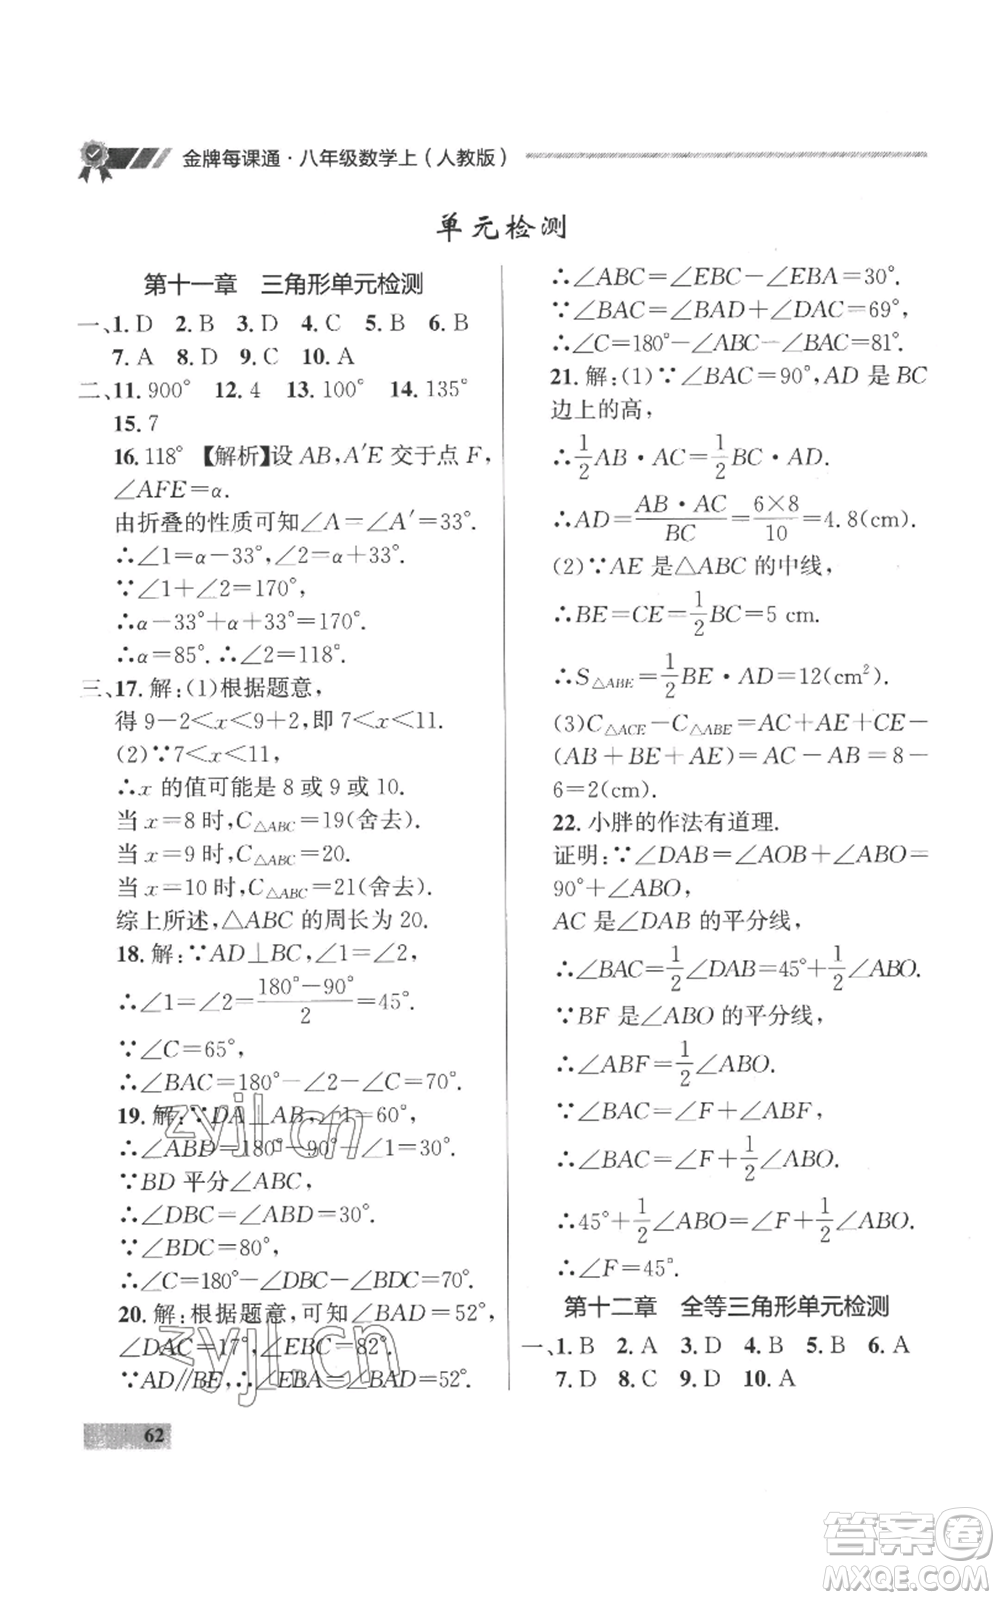 金牌每课通·八年级数学上(人教版)
单元检测
第十一章 三角形单元检测
一、1. D 2. B 3. D 4. C 5. B 6. B
7. A 8. D 9. C 10. A
二、11. 900° 12. 4 13. 100° 14. 135°
15. 7
16. 118° 【解析】设 AB, A′E 交于点 F,
∠AFE=α.
由折叠的性质可知∠A=∠A′=33°.
∴∠1=α-33°, ∠2=α+33°.
∵∠1+∠2=170°,
∴α-33°+α+33°=170°.
∴α=85°. ∴∠2=118°.
三、17. 解:(1)根据题意,
得 9-2<x<9+2, 即 7<x<11.
(2)∵7<x<11,
∴x 的值可能是 8 或 9 或 10.
当 x=8 时, C△ABC=19(舍去).
当 x=9 时, C△ABC=20.
当 x=10 时, C△ABC=21(舍去).
综上所述,△ABC 的周长为 20.
18. 解:∵AD⊥BC, ∠1=∠2,
∴∠1=∠2=(180°-90°)/2=45°.
∵∠C=65°,
∴∠BAC=180°-∠2-∠C=70°.
19. 解:∵DA⊥AB, ∠1=60°,
∴∠ABD=180°-90°-∠1=30°.
∵BD 平分∠ABC,
∴∠DBC=∠ABD=30°.
∵∠BDC=80°,
∴∠C=180°-∠DBC-∠BDC=70°.
20. 解:根据题意,可知∠BAD=52°,
∠DAC=17°, ∠EBC=82°.
∵AD∥BE, ∴∠EBA=∠BAD=52°.
∴∠ABC=∠EBC-∠EBA=30°.
∵∠BAC=∠BAD+∠DAC=69°,
∴∠C=180°-∠ABC-∠BAC=81°.
21. 解:(1)∵∠BAC=90°, AD 是 BC
边上的高,
∴1/2 AB·AC=1/2 BC·AD.
∴AD=(AB·AC)/BC=(6×8)/10=4.8(cm).
(2)∵AE 是△ABC 的中线,
∴BE=CE=1/2 BC=5 cm.
∴S△ABE=1/2 BE·AD=12(cm²).
(3)C△ACE-C△ABE=AC+AE+CE-
(AB+BE+AE)=AC-AB=8-
6=2(cm).
22. 小胖的作法有道理.
证明:∵∠DAB=∠AOB+∠ABO=
90°+∠ABO,
AC 是∠DAB 的平分线,
∴∠BAC=1/2∠DAB=45°+1/2∠ABO.
∵BF 是∠ABO 的平分线,
∴∠ABF=1/2∠ABO.
∵∠BAC=∠F+∠ABF,
∴∠BAC=∠F+1/2∠ABO.
∴45°+1/2∠ABO=∠F+1/2∠ABO.
∴∠F=45°.
第十二章 全等三角形单元检测
一、1. B 2. A 3. D 4. B 5. B 6. A
7. D 8. C 9. D 10. A
62
zyjl.cn
zyjl.cn
答案圈
MXQE.COM